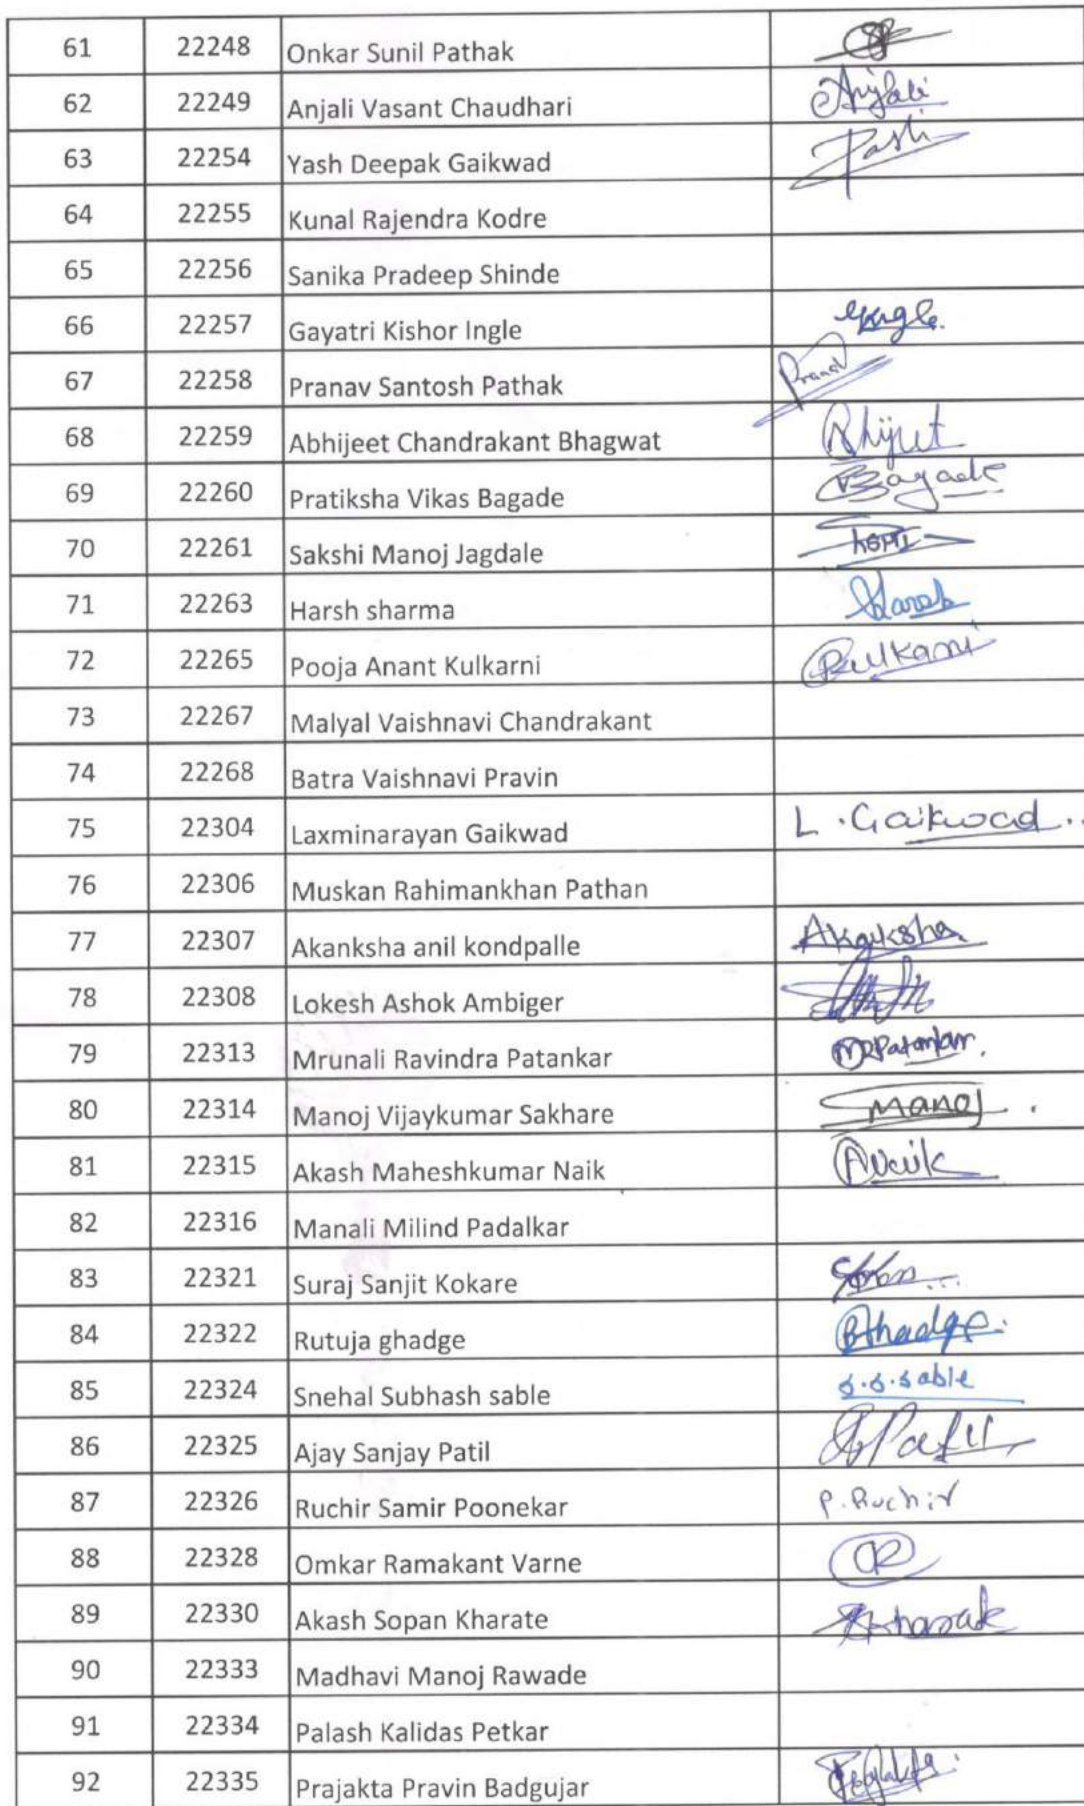 61 22248 Onkar Sunil Pathak
62 22249 Anjali Vasant Chaudhari Anjali
63 22254 Yash Deepak Gaikwad Yash
64 22255 Kunal Rajendra Kodre
65 22256 Sanika Pradeep Shinde
66 22257 Gayatri Kishor Ingle
67 22258 Pranav Santosh Pathak Pranav
68 22259 Abhijeet Chandrakant Bhagwat
69 22260 Pratiksha Vikas Bagade Bagade
70 22261 Sakshi Manoj Jagdale
71 22263 Harsh sharma
72 22265 Pooja Anant Kulkarni
73 22267 Malyal Vaishnavi Chandrakant
74 22268 Batra Vaishnavi Pravin
75 22304 Laxminarayan Gaikwad L. Gaikwad
76 22306 Muskan Rahimankhan Pathan
77 22307 Akanksha anil kondpalle Akanksha
78 22308 Lokesh Ashok Ambiger
79 22313 Mrunali Ravindra Patankar MRPatankar.
80 22314 Manoj Vijaykumar Sakhare Manoj
81 22315 Akash Maheshkumar Naik ANaik
82 22316 Manali Milind Padalkar
83 22321 Suraj Sanjit Kokare
84 22322 Rutuja ghadge
85 22324 Snehal Subhash sable s.s.sable
86 22325 Ajay Sanjay Patil APatil
87 22326 Ruchir Samir Poonekar P. Ruchir
88 22328 Omkar Ramakant Varne
89 22330 Akash Sopan Kharate
90 22333 Madhavi Manoj Rawade
91 22334 Palash Kalidas Petkar
92 22335 Prajakta Pravin Badgujar